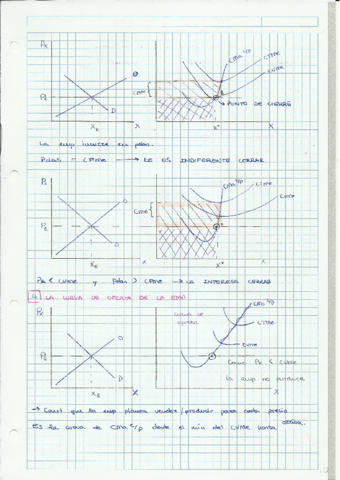 Px
CMa c/p
CTMe
CVMe
CFMe
PE
PUNTO DE CIERRE
O
D
XE
X
X*
X
La emp incurre en pdas.
Pdas = CFMe → LE ES INDIFERENTE CERRAR
Px
CMa c/p
CTMe
CVMe
CFMe
PE
O
D
XE
X
X*
X
PE < CVMe y Pdas > CFMe → LE INTERESA CERRAR
4 LA CURVA DE OFERTA DE LA EMP.
Px
CMa c/p
curva de oferta
CTMe
CVMe
PE
O
D
XE
X
X
Como PE < CVMe
la emp no produce
→ Cant que la emp planea vender/producir para cada precio
ES la curva de CMa c/p desde el min del CVMe hasta